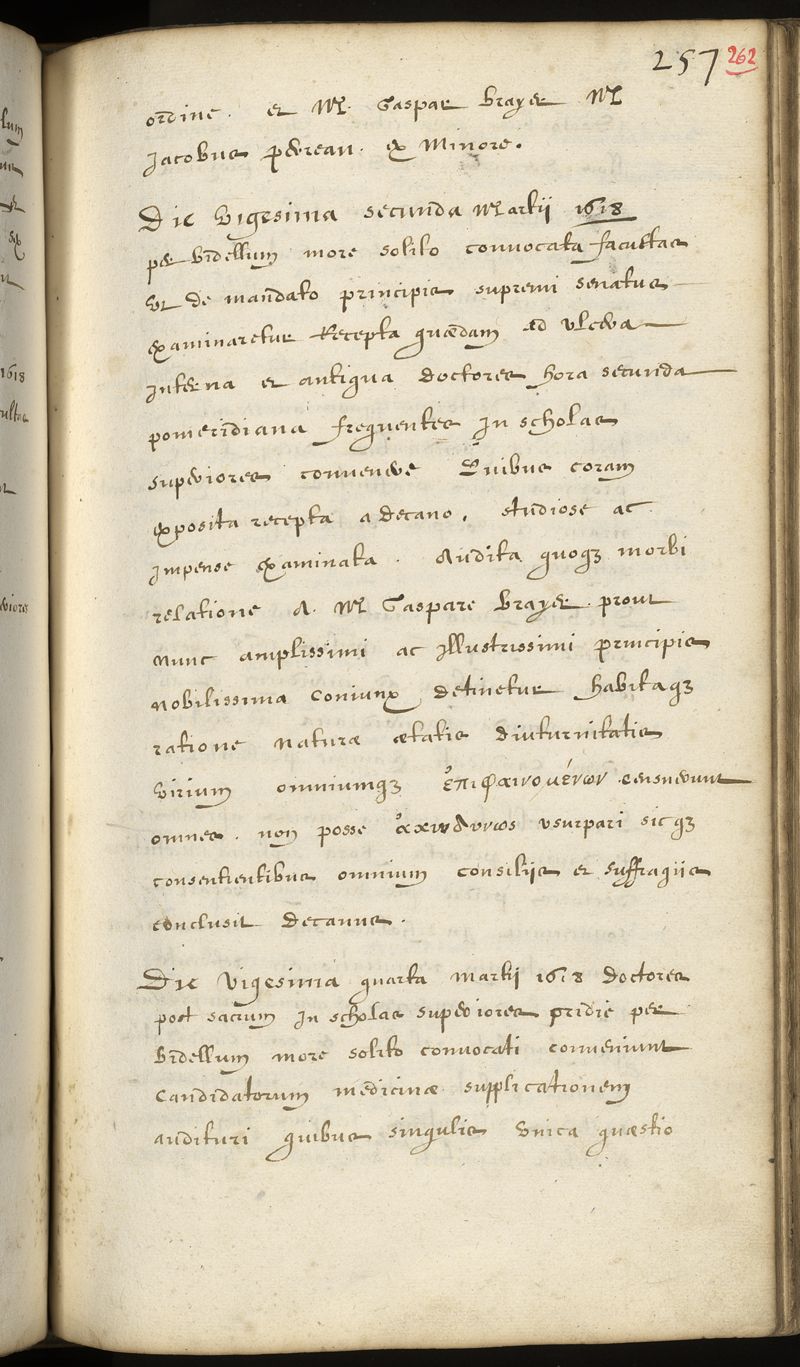 257 262
ordine. et M. Gaspar Brayer M
Jacobus perreau. ex Minore.
Die Vigesima secunda Martij 1618
per bidellum more solito convocata facultas
ut de mandato principis supremi senatus
examinaretur Recepta quædam ad ulcera
interna et antiqua doctores hora secunda
pomeridiana frequentes In scholas
superiores convenere Quibus coram
exposita recepta a decano, studiose ac
impense examinata. Audita quoqz morbi
relatione A. M Gaspare Brayer prout
nunc amplissimi ac Illustrissimi principis
nobilissima Coniunx detinetur habitaqz
ratione naturæ ætatis diuturnitatis
virium omniumqz ἐπιφαινομένων censuerunt
omnes. non posse ἀκινδύνως usurpari sicqz
consentientibus omnium consilijs et suffragiis
conclusit decanus.
Die Vigesima quarta martij 1618 doctores
post sacrum In scholas superiores pridie per
bidellum more solito convocati conveniunt
Candidatorum medicinæ supplicationem
audituri quibus singulis unica quæstio
1618